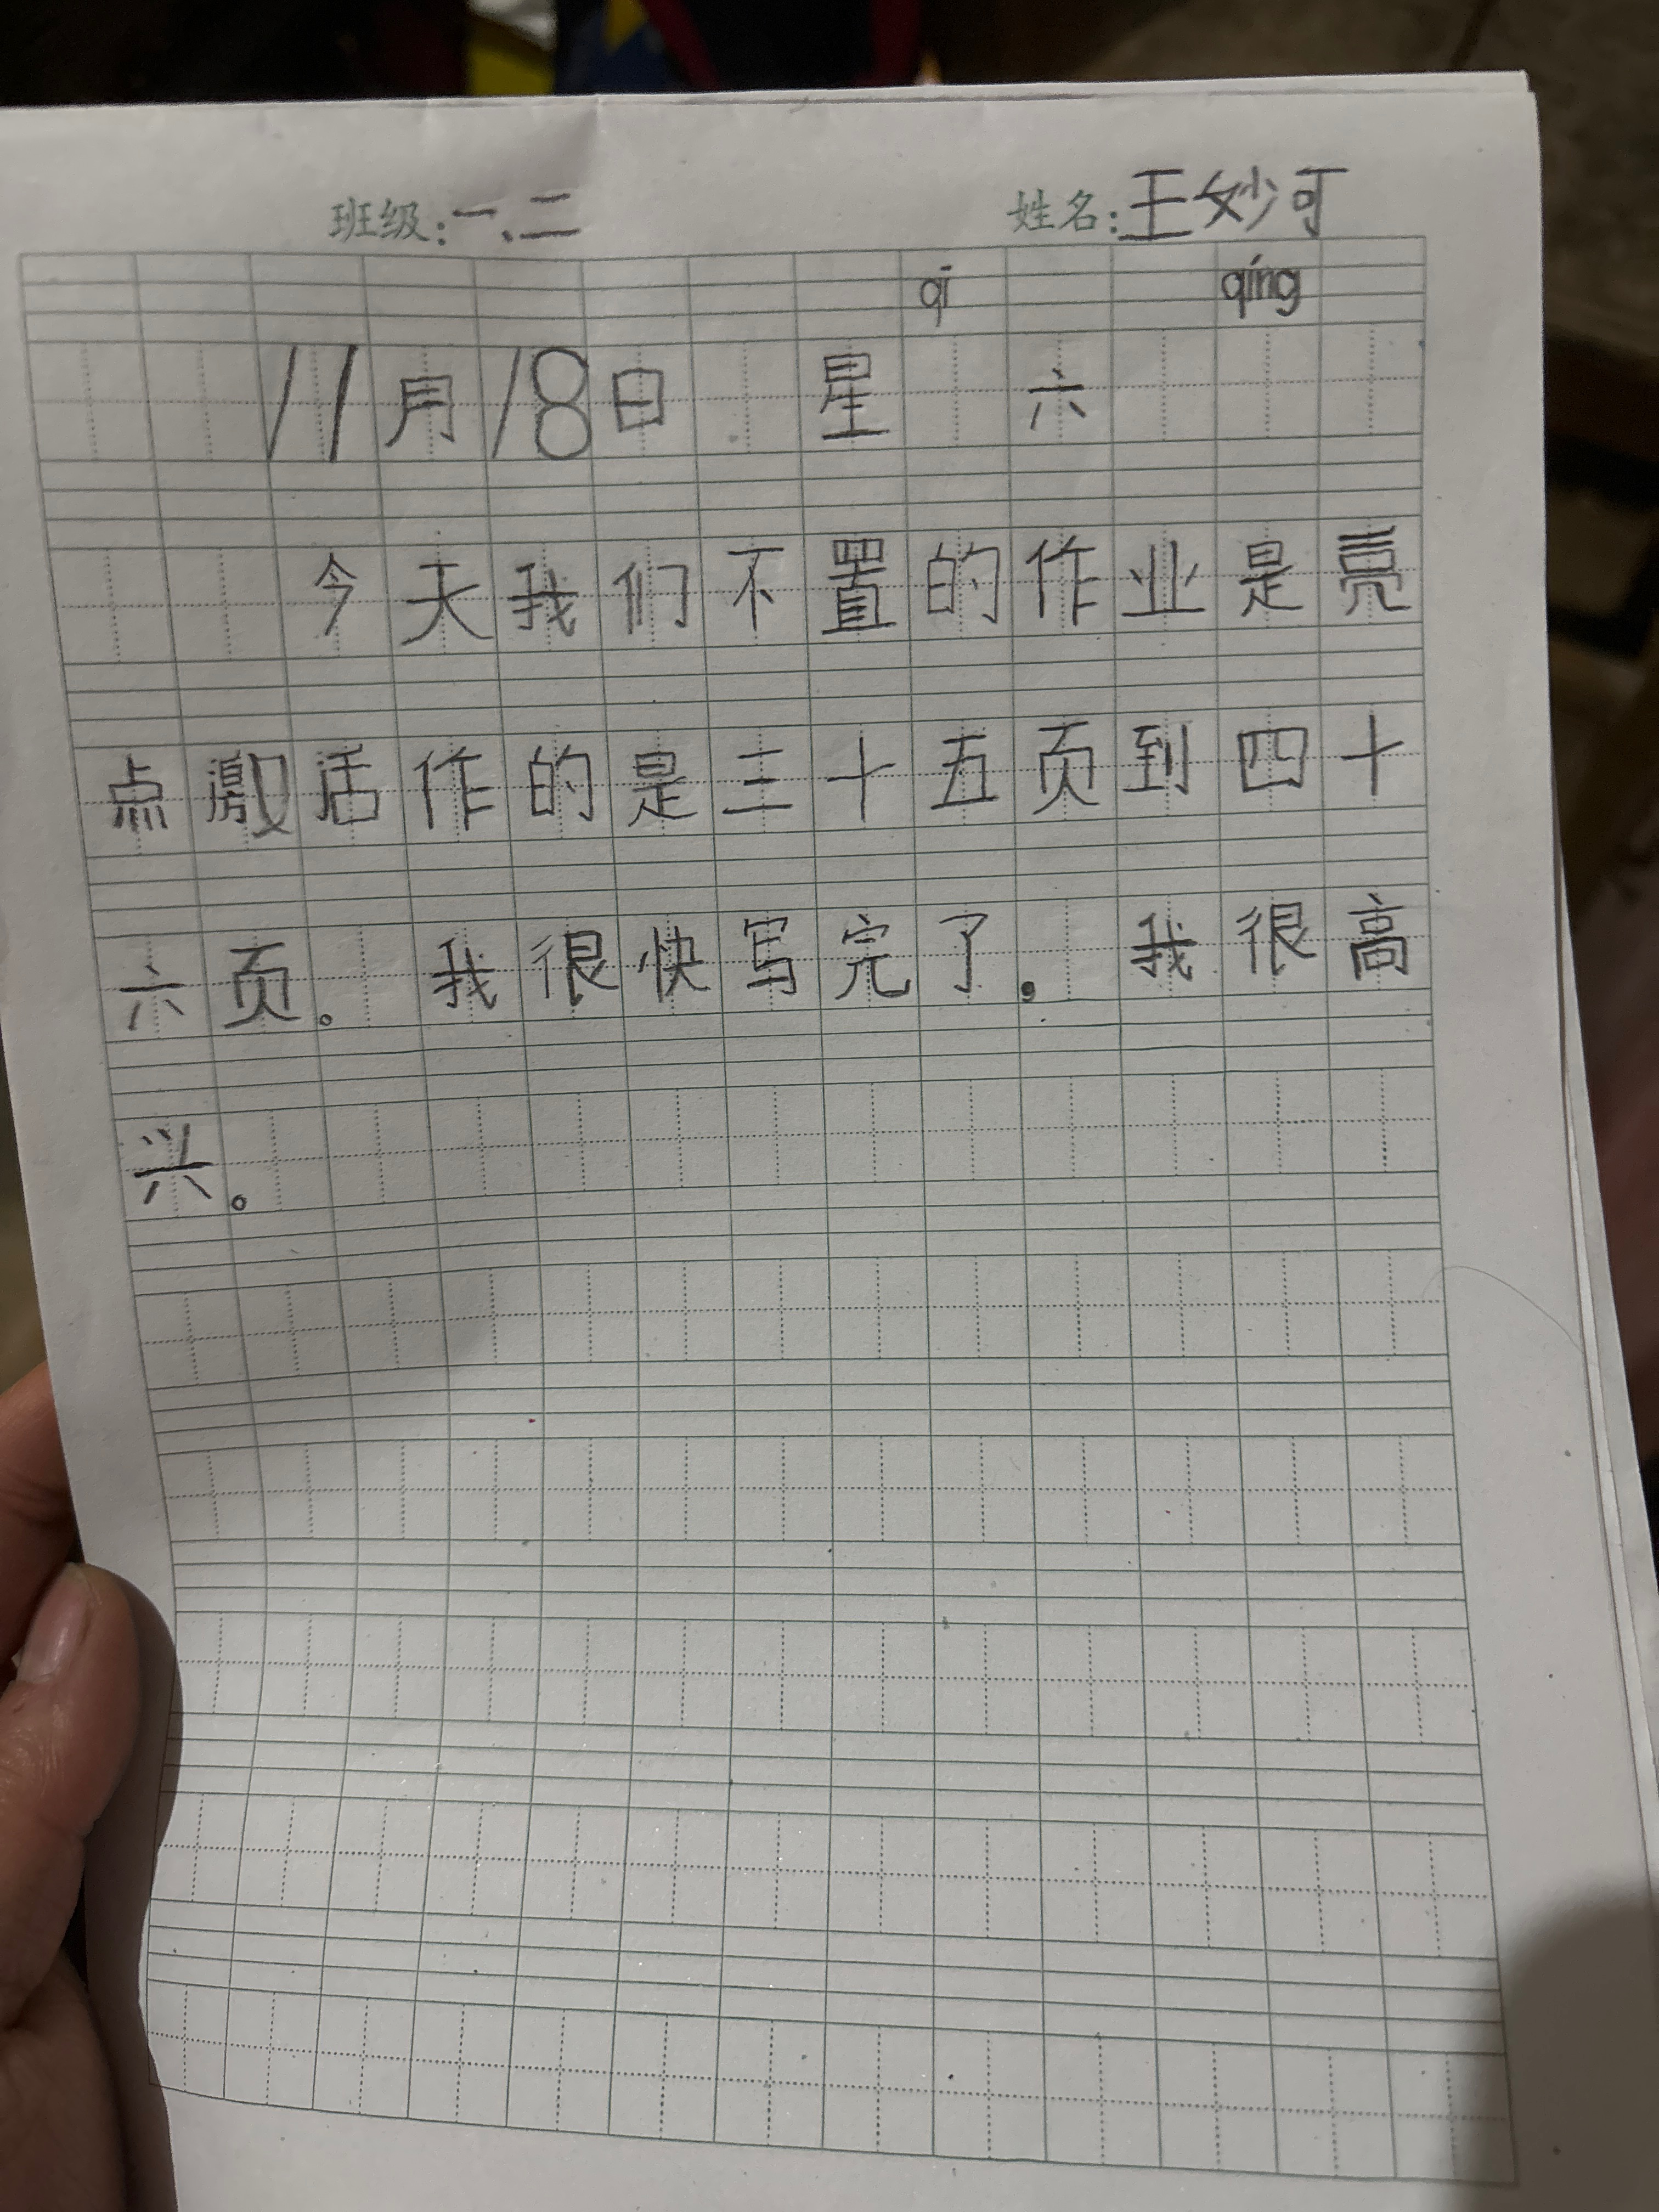 班级:一、二 姓名:王妙可
qī qíng
11月18日 星 六
今天我们不置的作业是亮
点激活作的是三十五页到四十
六页。我很快写完了。我很高
兴。